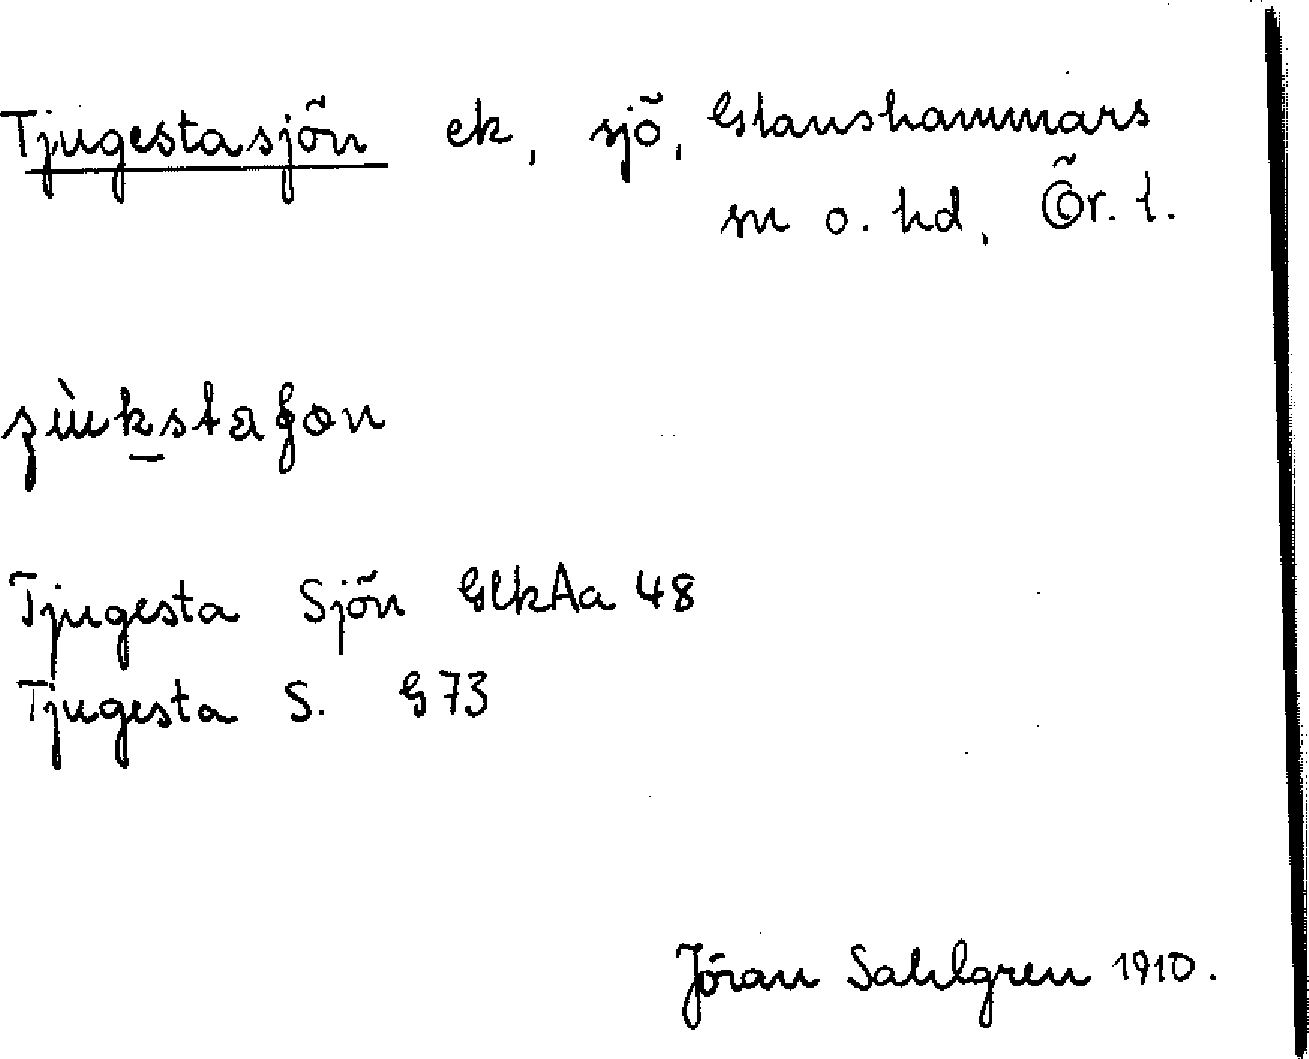 Tjugestasjön ek, sjö, Glanshammars
sn o. hd, Ör. l.
Tjugesta Sjön GlkAa 48
Tjugesta S. G73
Jöran Sahlgren 1910.